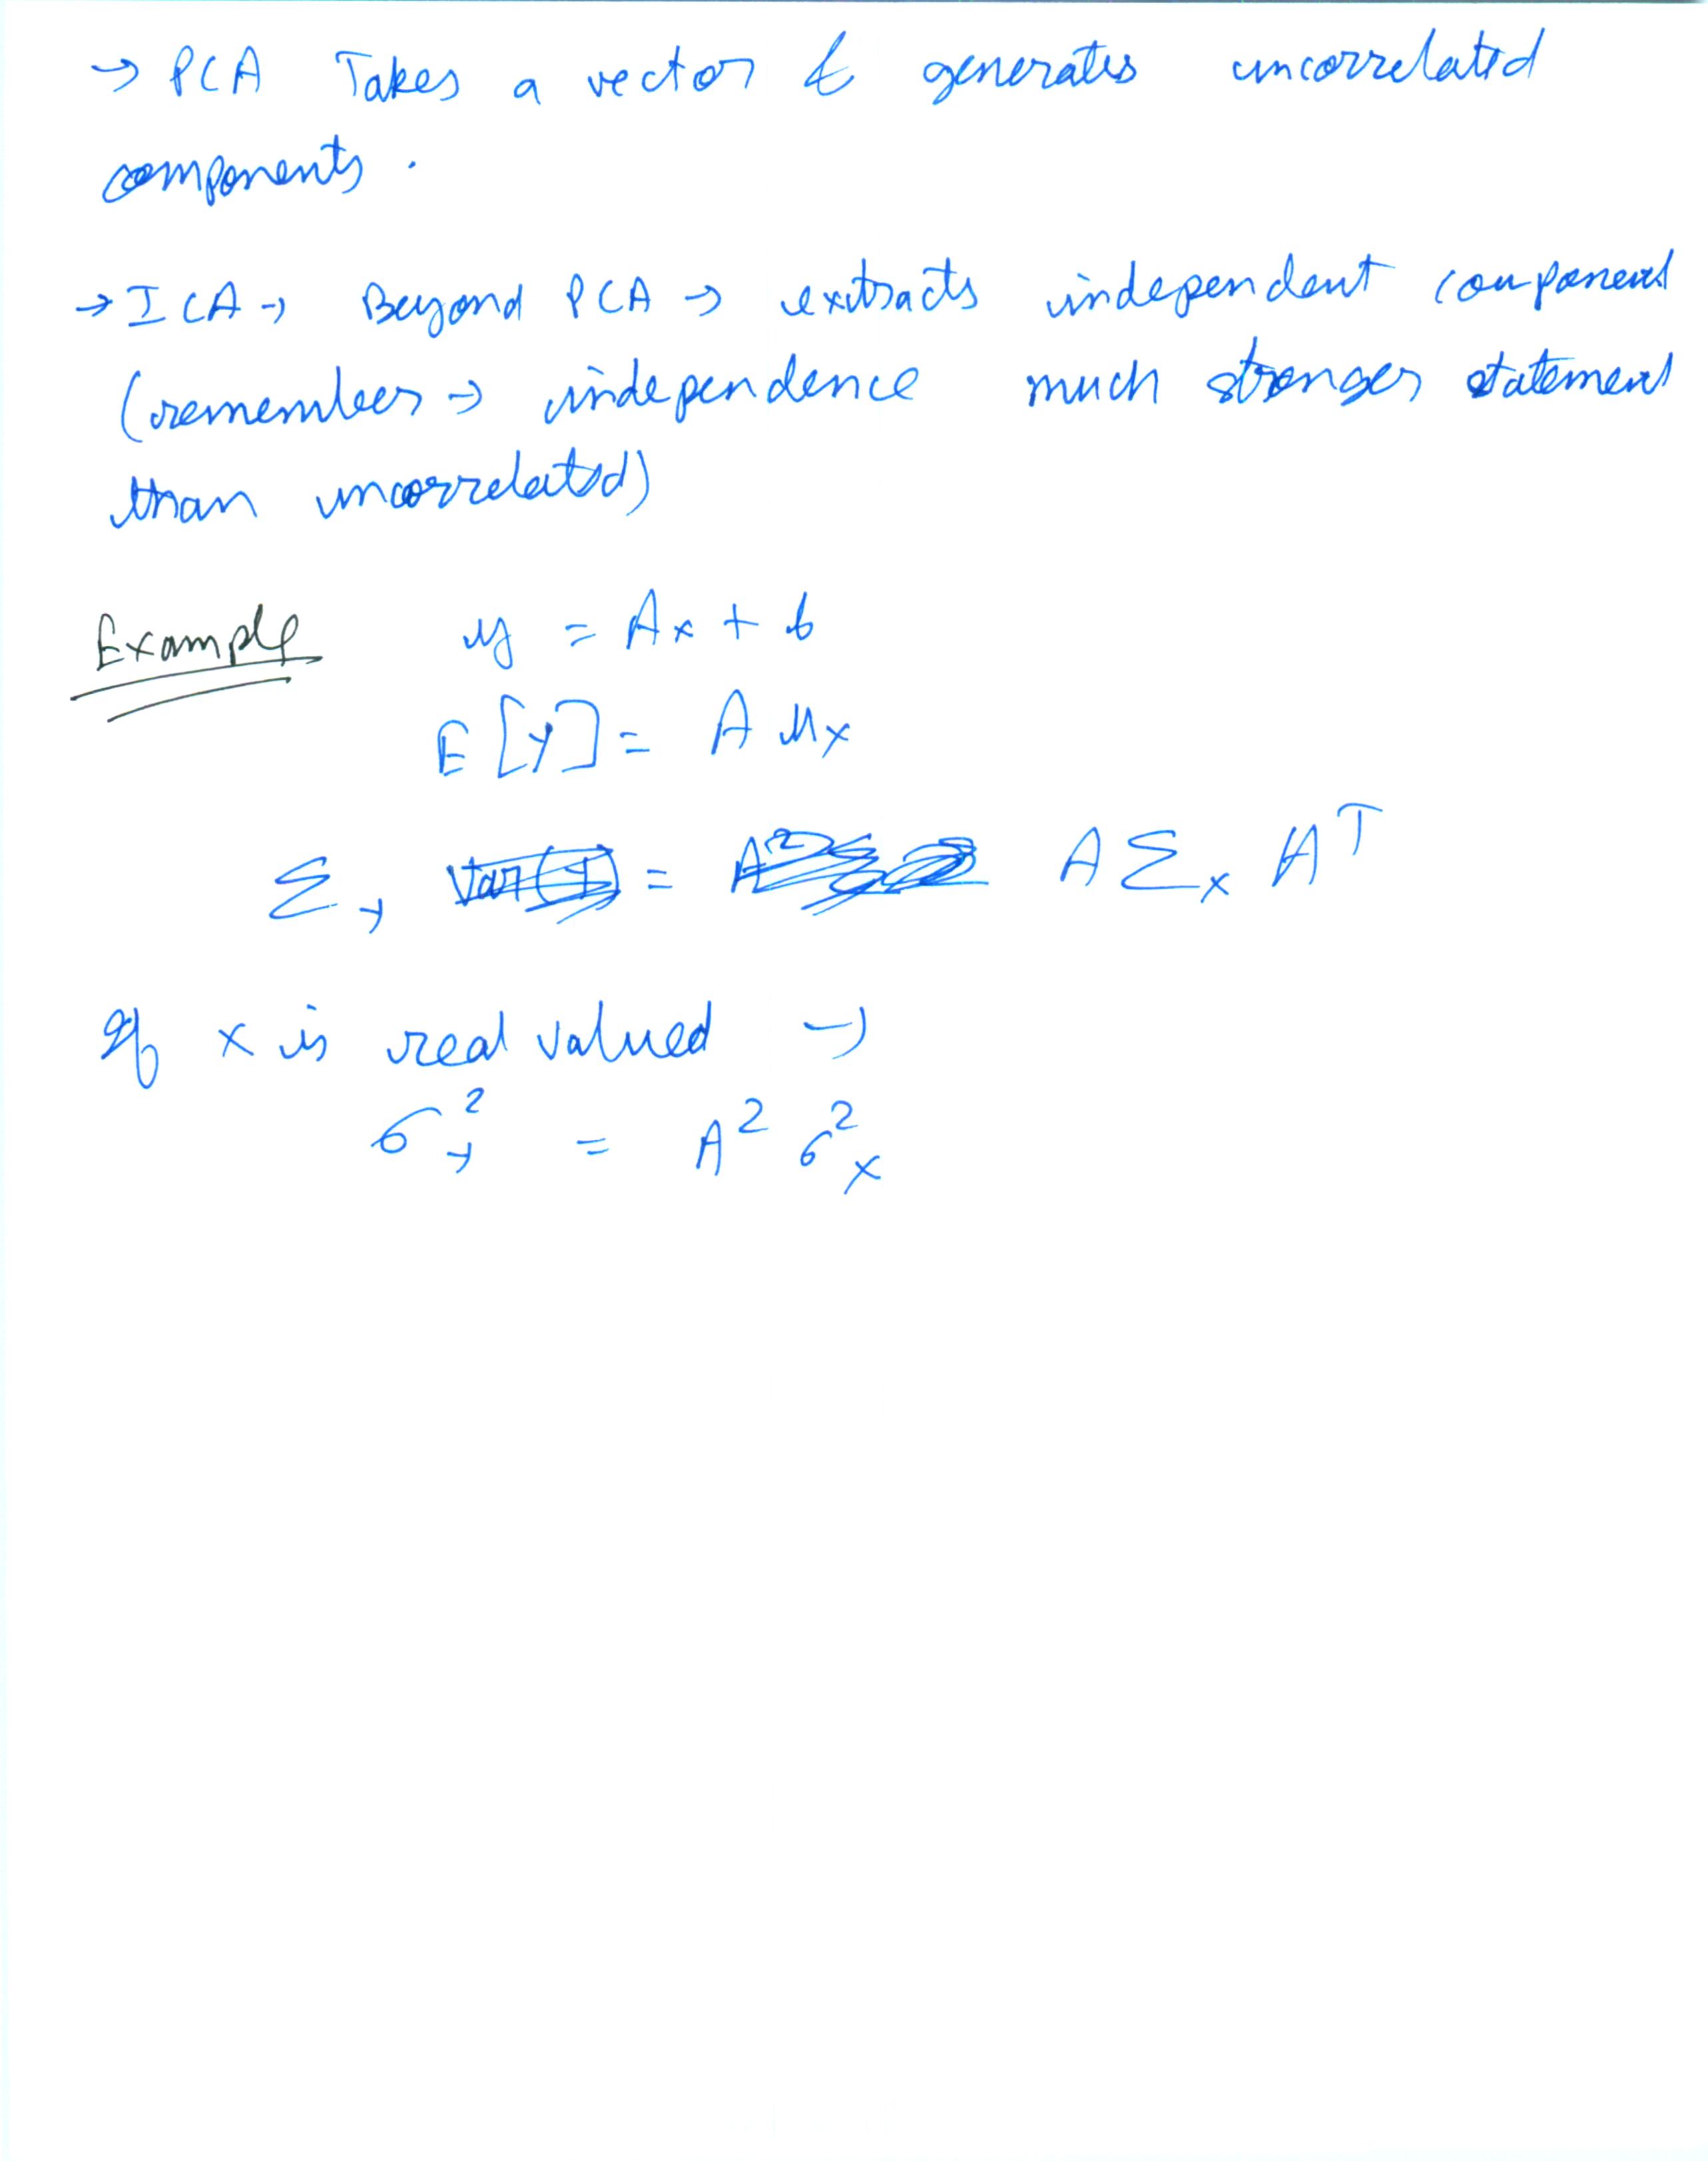 → PCA Takes a vector & generates uncorrelated
components.
→ ICA → Beyond PCA → extracts independent component
(remember → independence much stronger statement
than uncorrelated)
Example y = Ax + b
E[Y] = A μx
Σ_Y = A Σ_x A^T
If x is real valued →
σ_Y^2 = A^2 σ_x^2